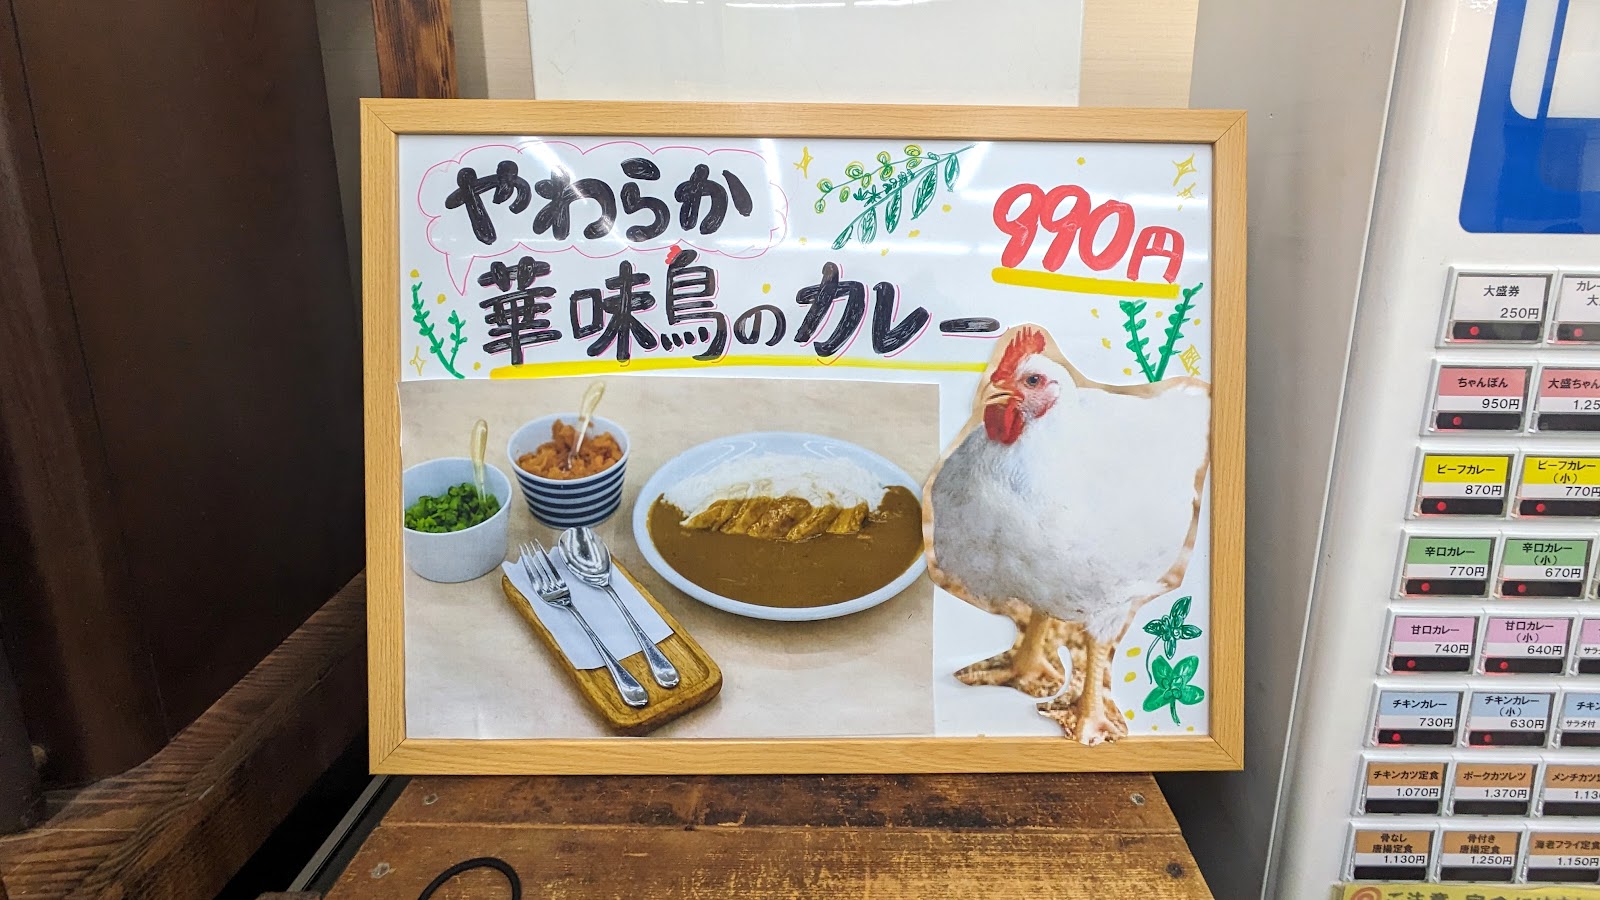 やわらか
華味鳥のカレー
990円
大盛券
250円
カレー
大
ちゃんぽん
950円
大盛ちゃん
1,25
ビーフカレー
870円
ビーフカレー
(小)
770円
辛口カレー
770円
辛口カレー
(小)
670円
甘口カレー
740円
甘口カレー
(小)
640円
サラ
チキンカレー
730円
チキンカレー
(小)
630円
チキン
サラダ付
チキンカツ定食
1,070円
ポークカツレツ
1,370円
メンチカツ
1,13
骨なし
唐揚定食
1,130円
骨付き
唐揚定食
1,250円
海老フライ定食
1,150円
ご注意